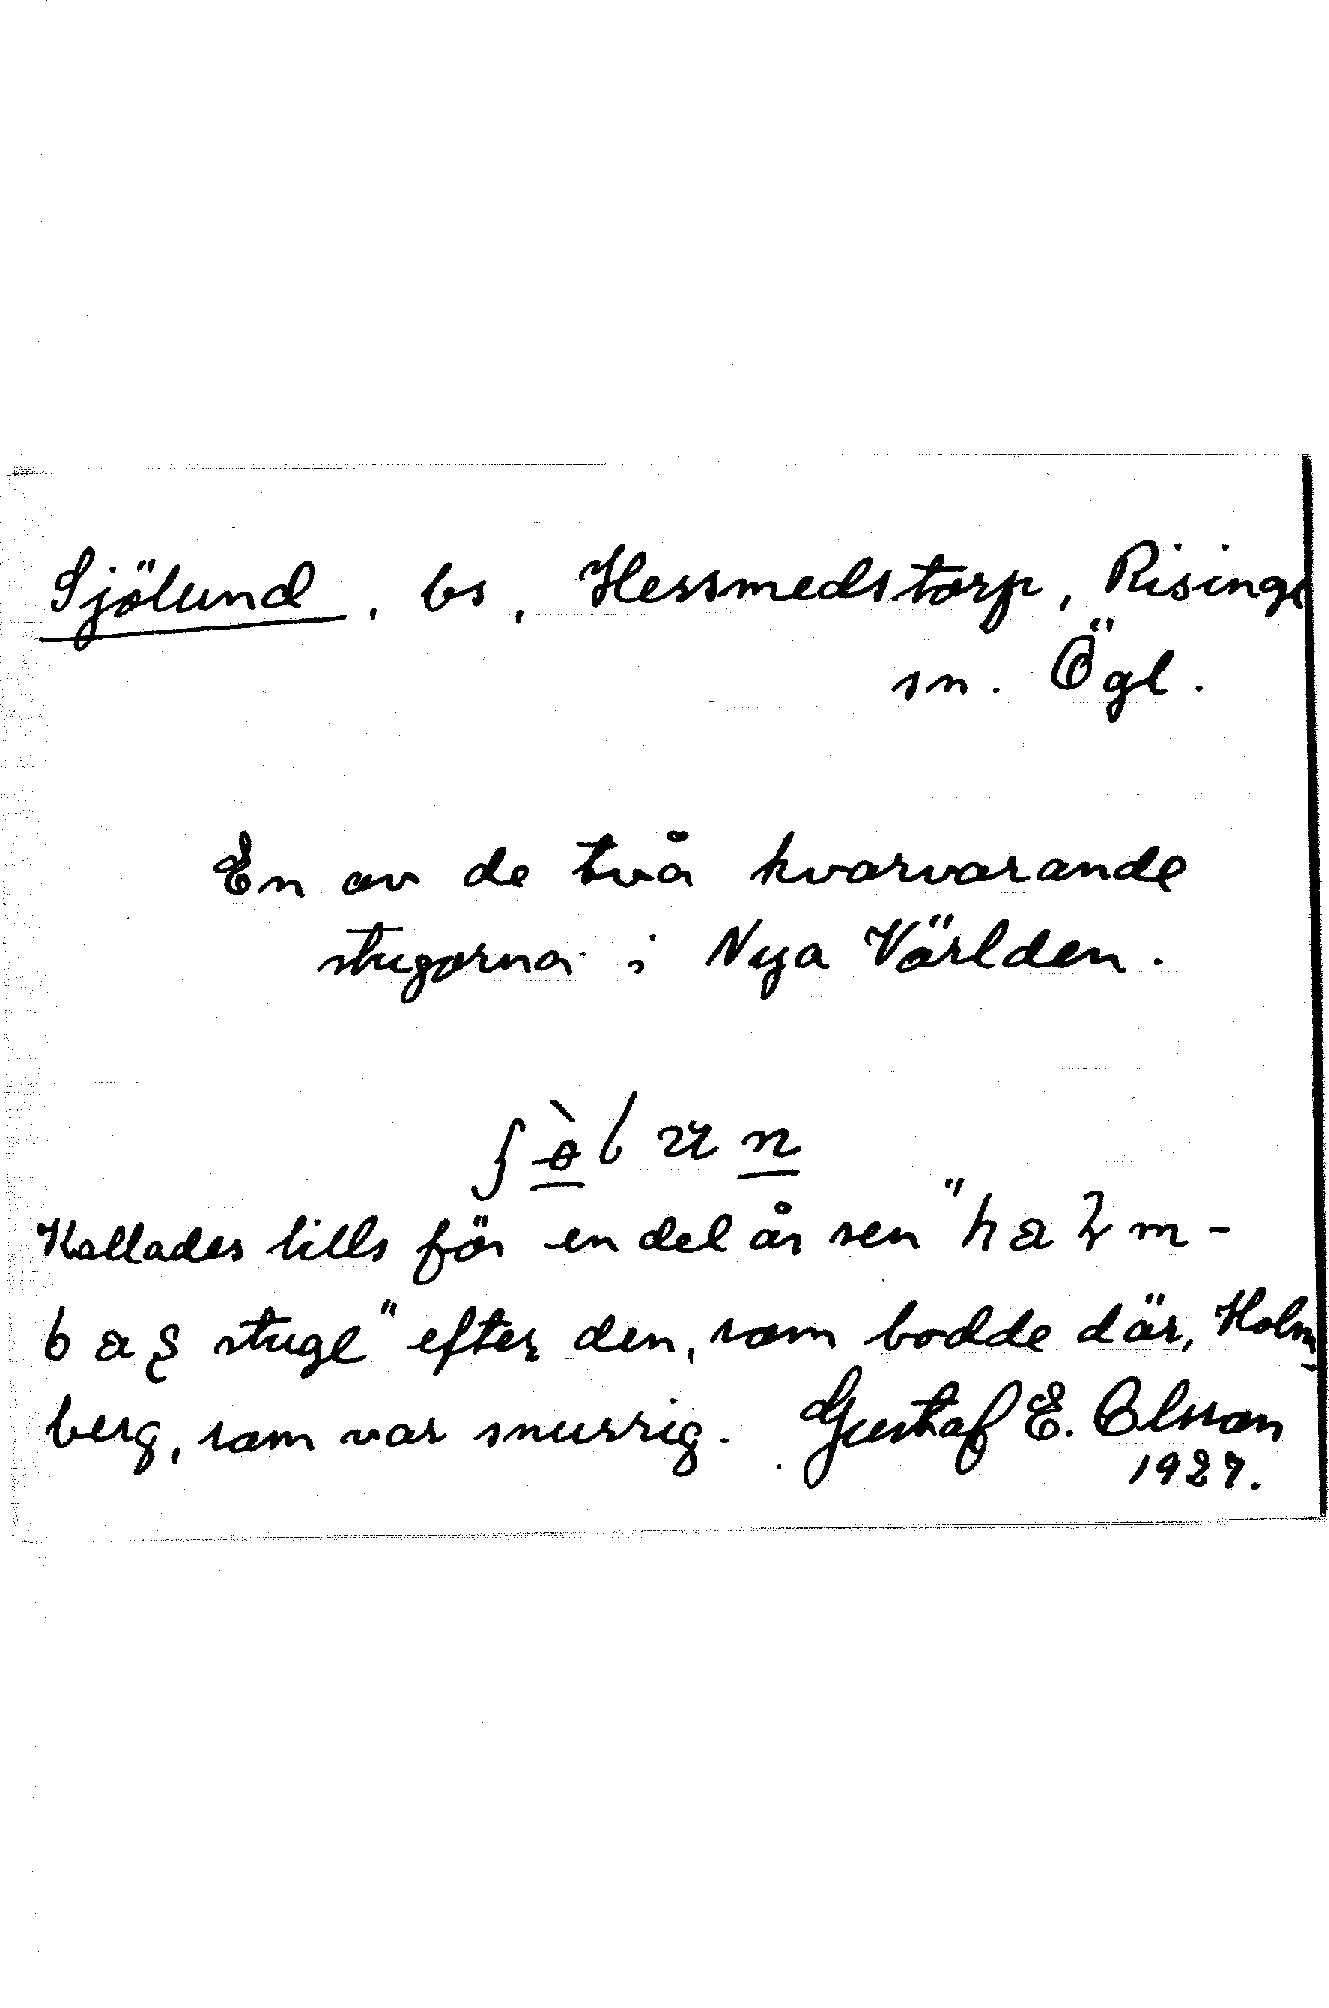 Sjölund, bs, Hessmedstorp, Risinge
sn. Ögl.
En av de två kvarvarande
stugorna i Nya Världen.
Kallades tills för en del år sen "
stuge" efter den, som bodde där, Holm-
berg, som var snurrig. Gustaf E. Olsson
1927.